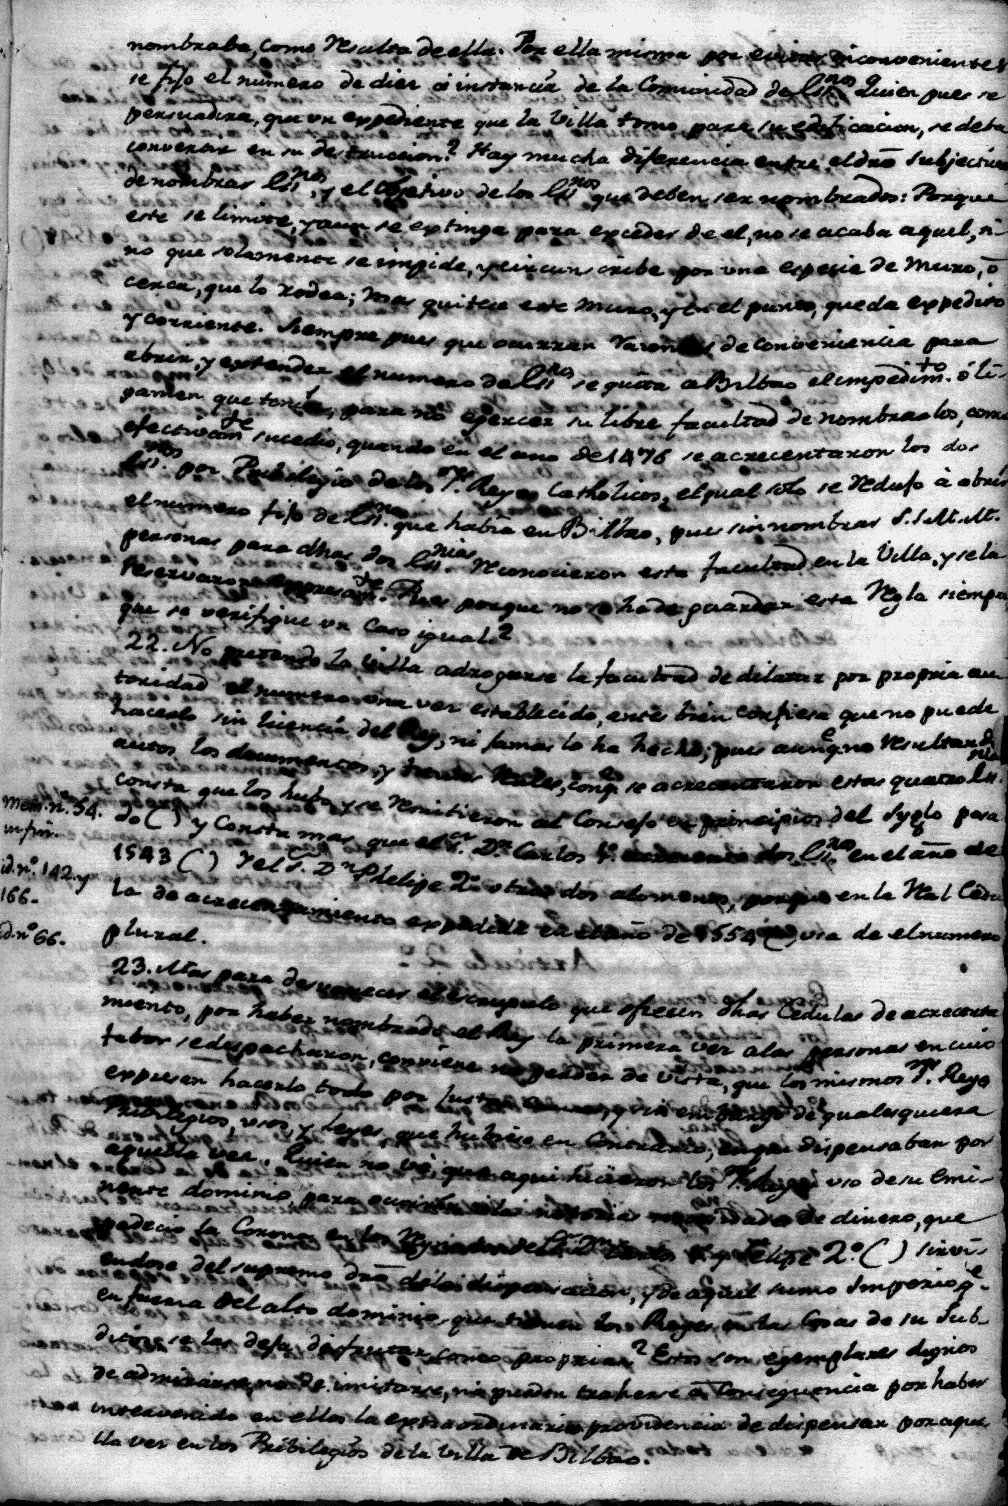 nombraba, como resulta de ella. Por ella misma por evitar inconvenientes
se fijó el numero de diez á instancia de la Comunidad de Ess.nos Quien pues se
persuadira, que un expediente que la Villa tomo para su edificacion, se deba
convertir en su destruccion? Hay mucha diferencia entre el dro. subjectivo
de nombrar Ess.nos, y el objetivo de los Ess.nos que deben ser nombrados: Porque
este se limite, y aun se extinga para exceder de el, no se acaba aquel, si
no que solamente se impide, y circunscribe por una especie de Muro, ó
cerca, que lo rodea; mas quitese este Muro, y en el punto, queda expedito
y corriente. Siempre pues que ocurran razones de conveniencia para
abrir, y extender el numero de Ess.nos se quita a Bilbao el impedim.to ó li-
gamen que tenia, para no ejercer su libre facultad de nombrarlos, como
efectivam.te sucedio, quando en el año de 1476 se acrecentaron los dos
Ess.nos por Pribilegio de los S.res Reyes Catholicos, el qual solo se redujo à abrir
el numero fijo de Ess.nos que habia en Bilbao, pues sin nombrar S.S.M.M.
personas para dhas dos Ess.nias reconocieron esta facultad en la Villa, y se la
reservaron expresam.te. Pues porque no se ha de guardar esta Regla siempre
que se verifique un caso igual?
22. No pretende la Villa adrogarse la facultad de dilatar por propria au
toridad el numero una vez establecido, antes bien confiesa que no puede
hacerlo sin licencia del Rey, ni jamas lo ha hecho; pues aunq.e no resultan de
autos los documentos, y titulos reales, con q.e se acrecentaron estas quatro Ess.nias
consta que los hubo y se remitieron al Consejo en principios del Syglo pasa
do ( ) y Consta mas que el S.or D.n Carlos 1.º acrecentó dos Ess.nos en el año de
1543 ( ) Y el S.r D.n Phelipe 2.º otras dos alomenos, porque en la Real Cedu
la de acrecentamiento expedida en el año de 1554 ( ) usa de el numero
plural.
Mem. n. 54.
in fin.
id. n.º 142. y
166.
id. n.º 66.
23. Mas para desvanecer el escrupulo que ofrecen dhas Cedulas de acrecenta
miento, por haber nombrado el Rey la primera vez a las personas en cuio
fabor se despacharon, conviene no perder de vista, que los mismos S.res Reyes
expresan hacerlo todo por justas causas, y sin embargo de qualesquiera
Pribilegios, usos, y leyes que hubiese en Contrario, en que dispensaban por
aquella vez. Quien no vé, que aqui hicieron los S.res Reyes uso de su Emi-
nente dominio, para ocurrir á las notorias necesidades de dinero, que
padecio la Corona en los Reynados de los S.res D.n Carlos 1.º y Felipe 2.º ( ) sirvi-
endose del supremo dro. de la dispensacion, y de aquel sumo Imperio q.e
en fuerza del alto dominio, que tienen los Reyes en las Cosas de su Sub-
ditos se las deja disfrutar como proprias? Estos son egemplares dignos
de admirarse, no de imitarse, ni pueden traherse á Consequencia por haber
intervenido en ellos la extraordinaria providencia de dispensar por aque
lla vez en los Pribilegios de la Villa de Bilbao.